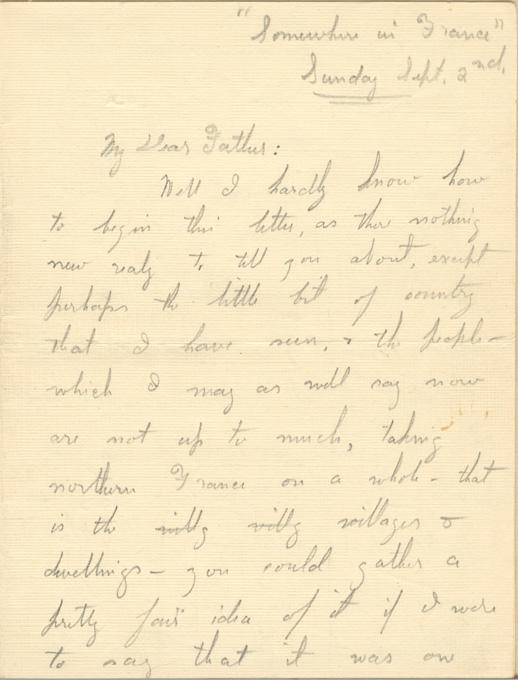 "Somewhere in France"
Sunday Sept. 2nd.
My Dear Father:
Well I hardly know how
to begin this letter, as there nothing
new realy to tell you about, except
perhaps the little bit of country
that I have seen, & the people—
which I may as well say now
are not up to much, taking
northern France on a whole - that
is the villg villg villages &
dwellings — you could gather a
pretty fair idea of it if I were
to say that it was on